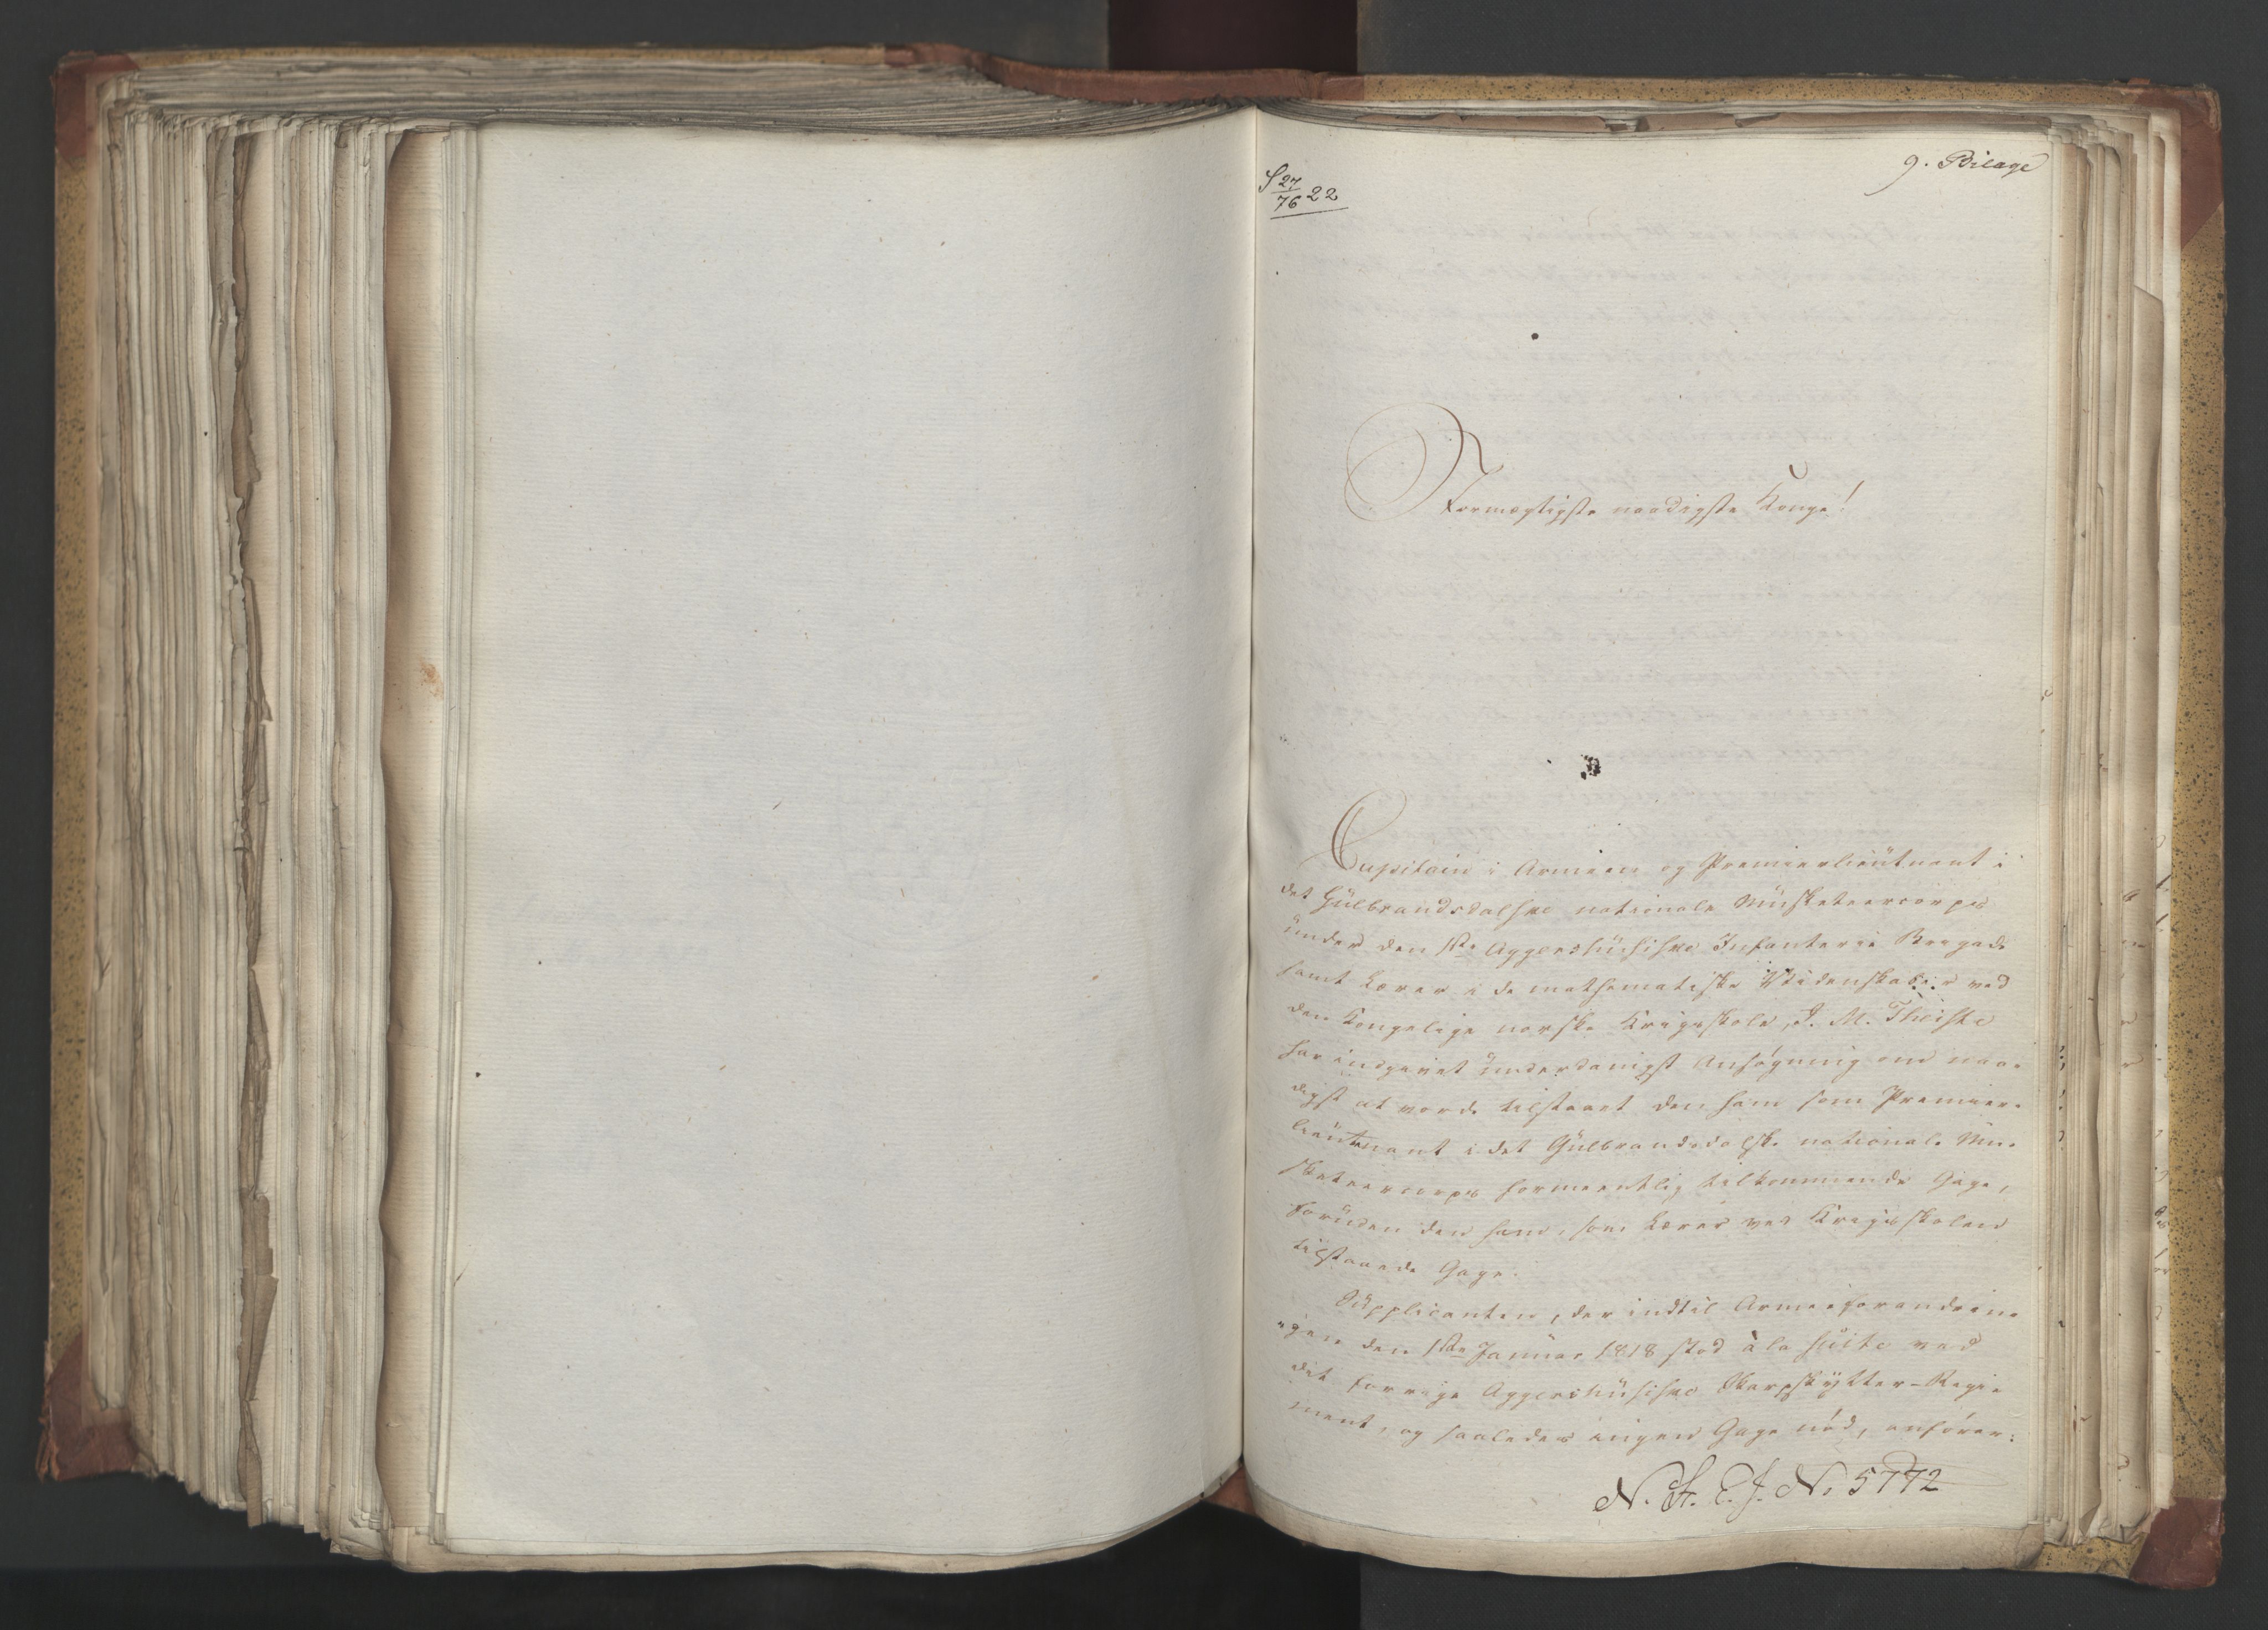 9. Bilage
S 27/76 22
Stormægtigste naadigste Konge!
Capitain i Armeen og Premierlieutnant i
det Gülbrandsdalske nationale Müsketeercorps
ünder den 1ste Aggershüsiske Infanterie Brigade
samt Lærer i de mathematiske Videnskaber ved
den Kongelige norske Krigsskole, J. M. Theiste
har indgivet ünderdanigst Ansøgning om naa-
digst at vorde tilstaaet den ham som Premier-
lieutnant i det Gülbrandsdalske nationale Mu-
sketeercorps formeentlig tilkommende Gage,
foruden den ham, som Lærer ved Krigsskolen
tilstaaede Gage.
Supplicanten, der indtil Armeeforandrin-
gen den 1ste Januar 1818 stod à la suite ved
det forrige Aggershüsiske Skarpskytter-Regi-
ment, og saaledes ingen Gage nød, anfører:
N. A. E. J. No 5772